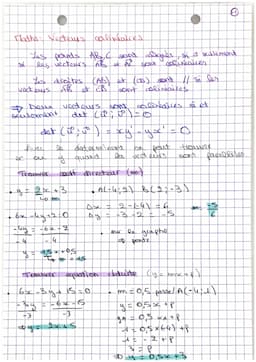 Maths: Vecteurs colinéaires
Les points A, B, C sont alignés, si et seulement
si les vecteurs AB et AC sont colinéaires
Les droites (AB) et (CD) sont // si les
vecteurs AB et CD sont colinéaires
⇒ Deux vecteurs sont colinéaires si et
seulement det (u⃗; v⃗) = 0
det (u⃗; v⃗) = xy' - yx' = 0
Avec le déterminant on peut trouver
x ou y quand les vecteurs sont parallèles
Trouver coeff directeur (m)
• y = 2x + 3
• A(-4; 2) B(2; -3)
Δx = 2-(-4) = 6
Δy = -3-2 = -5
• 6x - 4y + 2 = 0
-4y = -6x - 2
-4 -4
• sur le graphe
Trouver équation réduite (y = mx + p)
• 6x - 3y + 15 = 0
-3y = -6x - 15
-3 -3
y = 2x + 5
• m = 0,5 passe A(-4; 1)
y = 0,5x + p
1 = 0,5x(-4) + p
1 = -2 + p
3 = p
y = 0,5x + 3